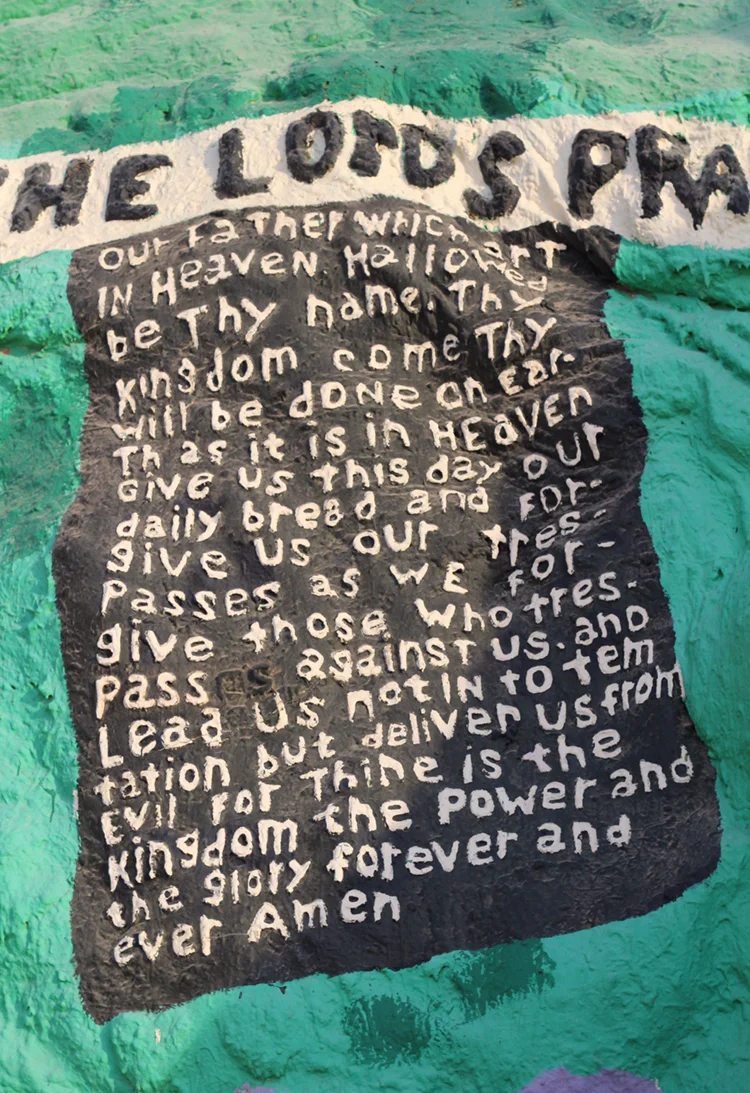 THE LORDS PRA
Our Father which art
IN Heaven. Hallowed
be Thy name. Thy
Kingdom come Thy
will be done on Ear-
Th as it is in HEaVEN
Give us this day our
daily bread and FOR-
give us our tres-
Passes as WE for-
give those who tres-
Pass against us. and
Lead us not IN to tem
tation but deliver us from
Evil for Thine is the
Kingdom the Power and
the glory forever and
ever Amen